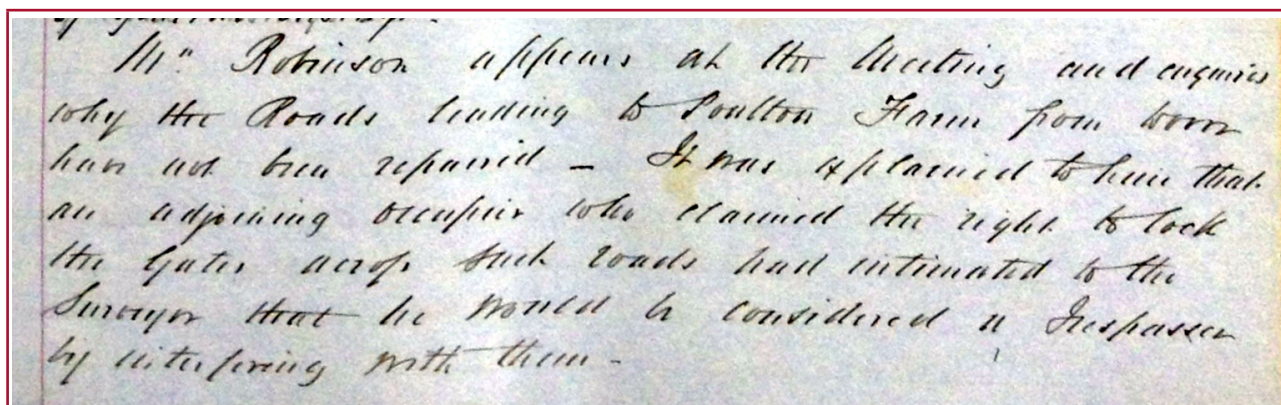 Mr. Robinson appears at the Meeting and enquires
why the Roads leading to Poulton Farm from
have not been repaired – It was explained to him that
an adjoining occupier who claimed the right to lock
the Gates across such roads had intimated to the
Surveyor that he would be considered a Trespasser
by interfering with them –